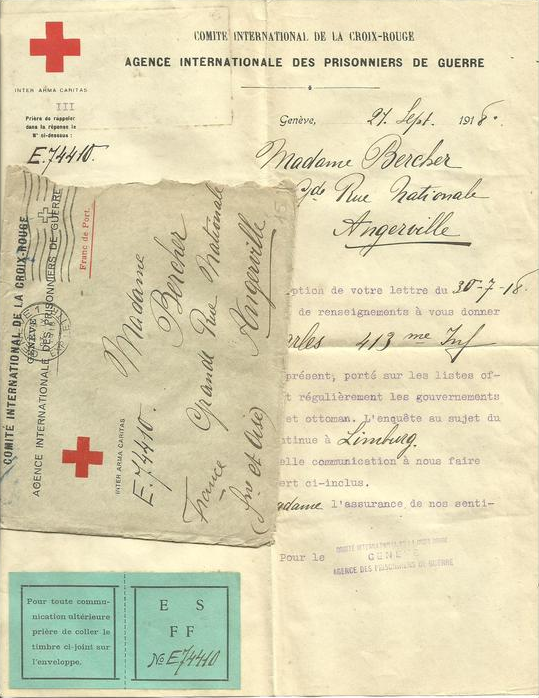 COMITÉ INTERNATIONAL DE LA CROIX-ROUGE
AGENCE INTERNATIONALE DES PRISONNIERS DE GUERRE
INTER ARMA CARITAS
III
Prière de rappeler
dans la réponse le
N° ci-dessous :
E.74410.
Genève, 21 Sept. 1918.
Madame Bercher
gde Rue Nationale
Angerville
ption de votre lettre du 30-7-18
de renseignements à vous donner
rles 413 me Inf
présent, porté sur les listes of-
t régulièrement les gouvernements
et ottoman. L'enquête au sujet du
tinue à Limburg.
elle communication à nous faire
ert ci-inclus.
adame l'assurance de nos senti-
Pour le
COMITÉ INTERNATIONAL DE LA CROIX-ROUGE
GENÈVE
AGENCE DES PRISONNIERS DE GUERRE
COMITÉ INTERNATIONAL DE LA CROIX-ROUGE
AGENCE INTERNATIONALE DES PRISONNIERS DE GUERRE
GENÈVE
Franc de Port.
INTER ARMA CARITAS
E.74410.
Madame
Bercher
Grande Rue Nationale
Angerville
France (Sne et Oise)
Pour toute commu-
nication ultérieure
prière de coller le
timbre ci-joint sur
l'enveloppe.
E S
FF
No E74410